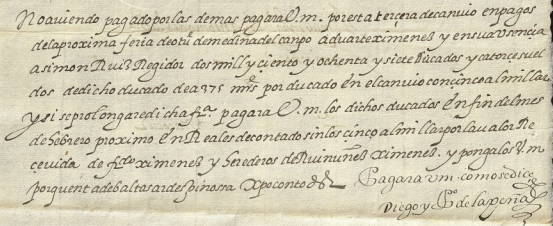 No aviendo pagado por las demas pagara V.m. por esta tercera de canvio en pagos
de la proxima feria de otue de medina del canpo a duarte ximenez y en su avsencia
a simon Ruiz Regidor dos mill y ciento y ochenta y siete ducados y catorce suel
dos de dicho ducado de a 375 mrs por ducado en el canvio con cinco al millar
y si se prolongare dicha fa. pagara V.m. los dichos ducados en fin del mes
de hebrero proximo En Reales de contado sin los cinco al millar por la valor Re
cevida de fdo ximenez y herederos de Rui nunez ximenez. y pongalos V.m
por quenta de baltasar despinossa Xpo con todos
Pagara v m como se dice
Diego y Po de la peña